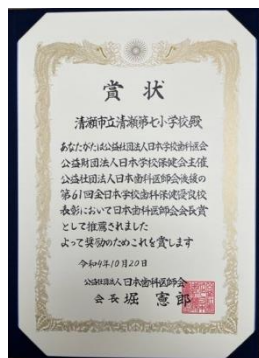 賞状
清瀬市立清瀬第七小学校殿
あなたがたは公益社団法人日本学校歯科医会
公益財団法人日本学校保健会主催
公益社団法人日本歯科医師会後援の
第61回全日本学校歯科保健優良校
表彰において日本歯科医師会会長賞
として推薦されました
よって奨励のためこれを賞します
令和4年10月20日
公益社団法人日本歯科医師会
会長 堀 憲郎